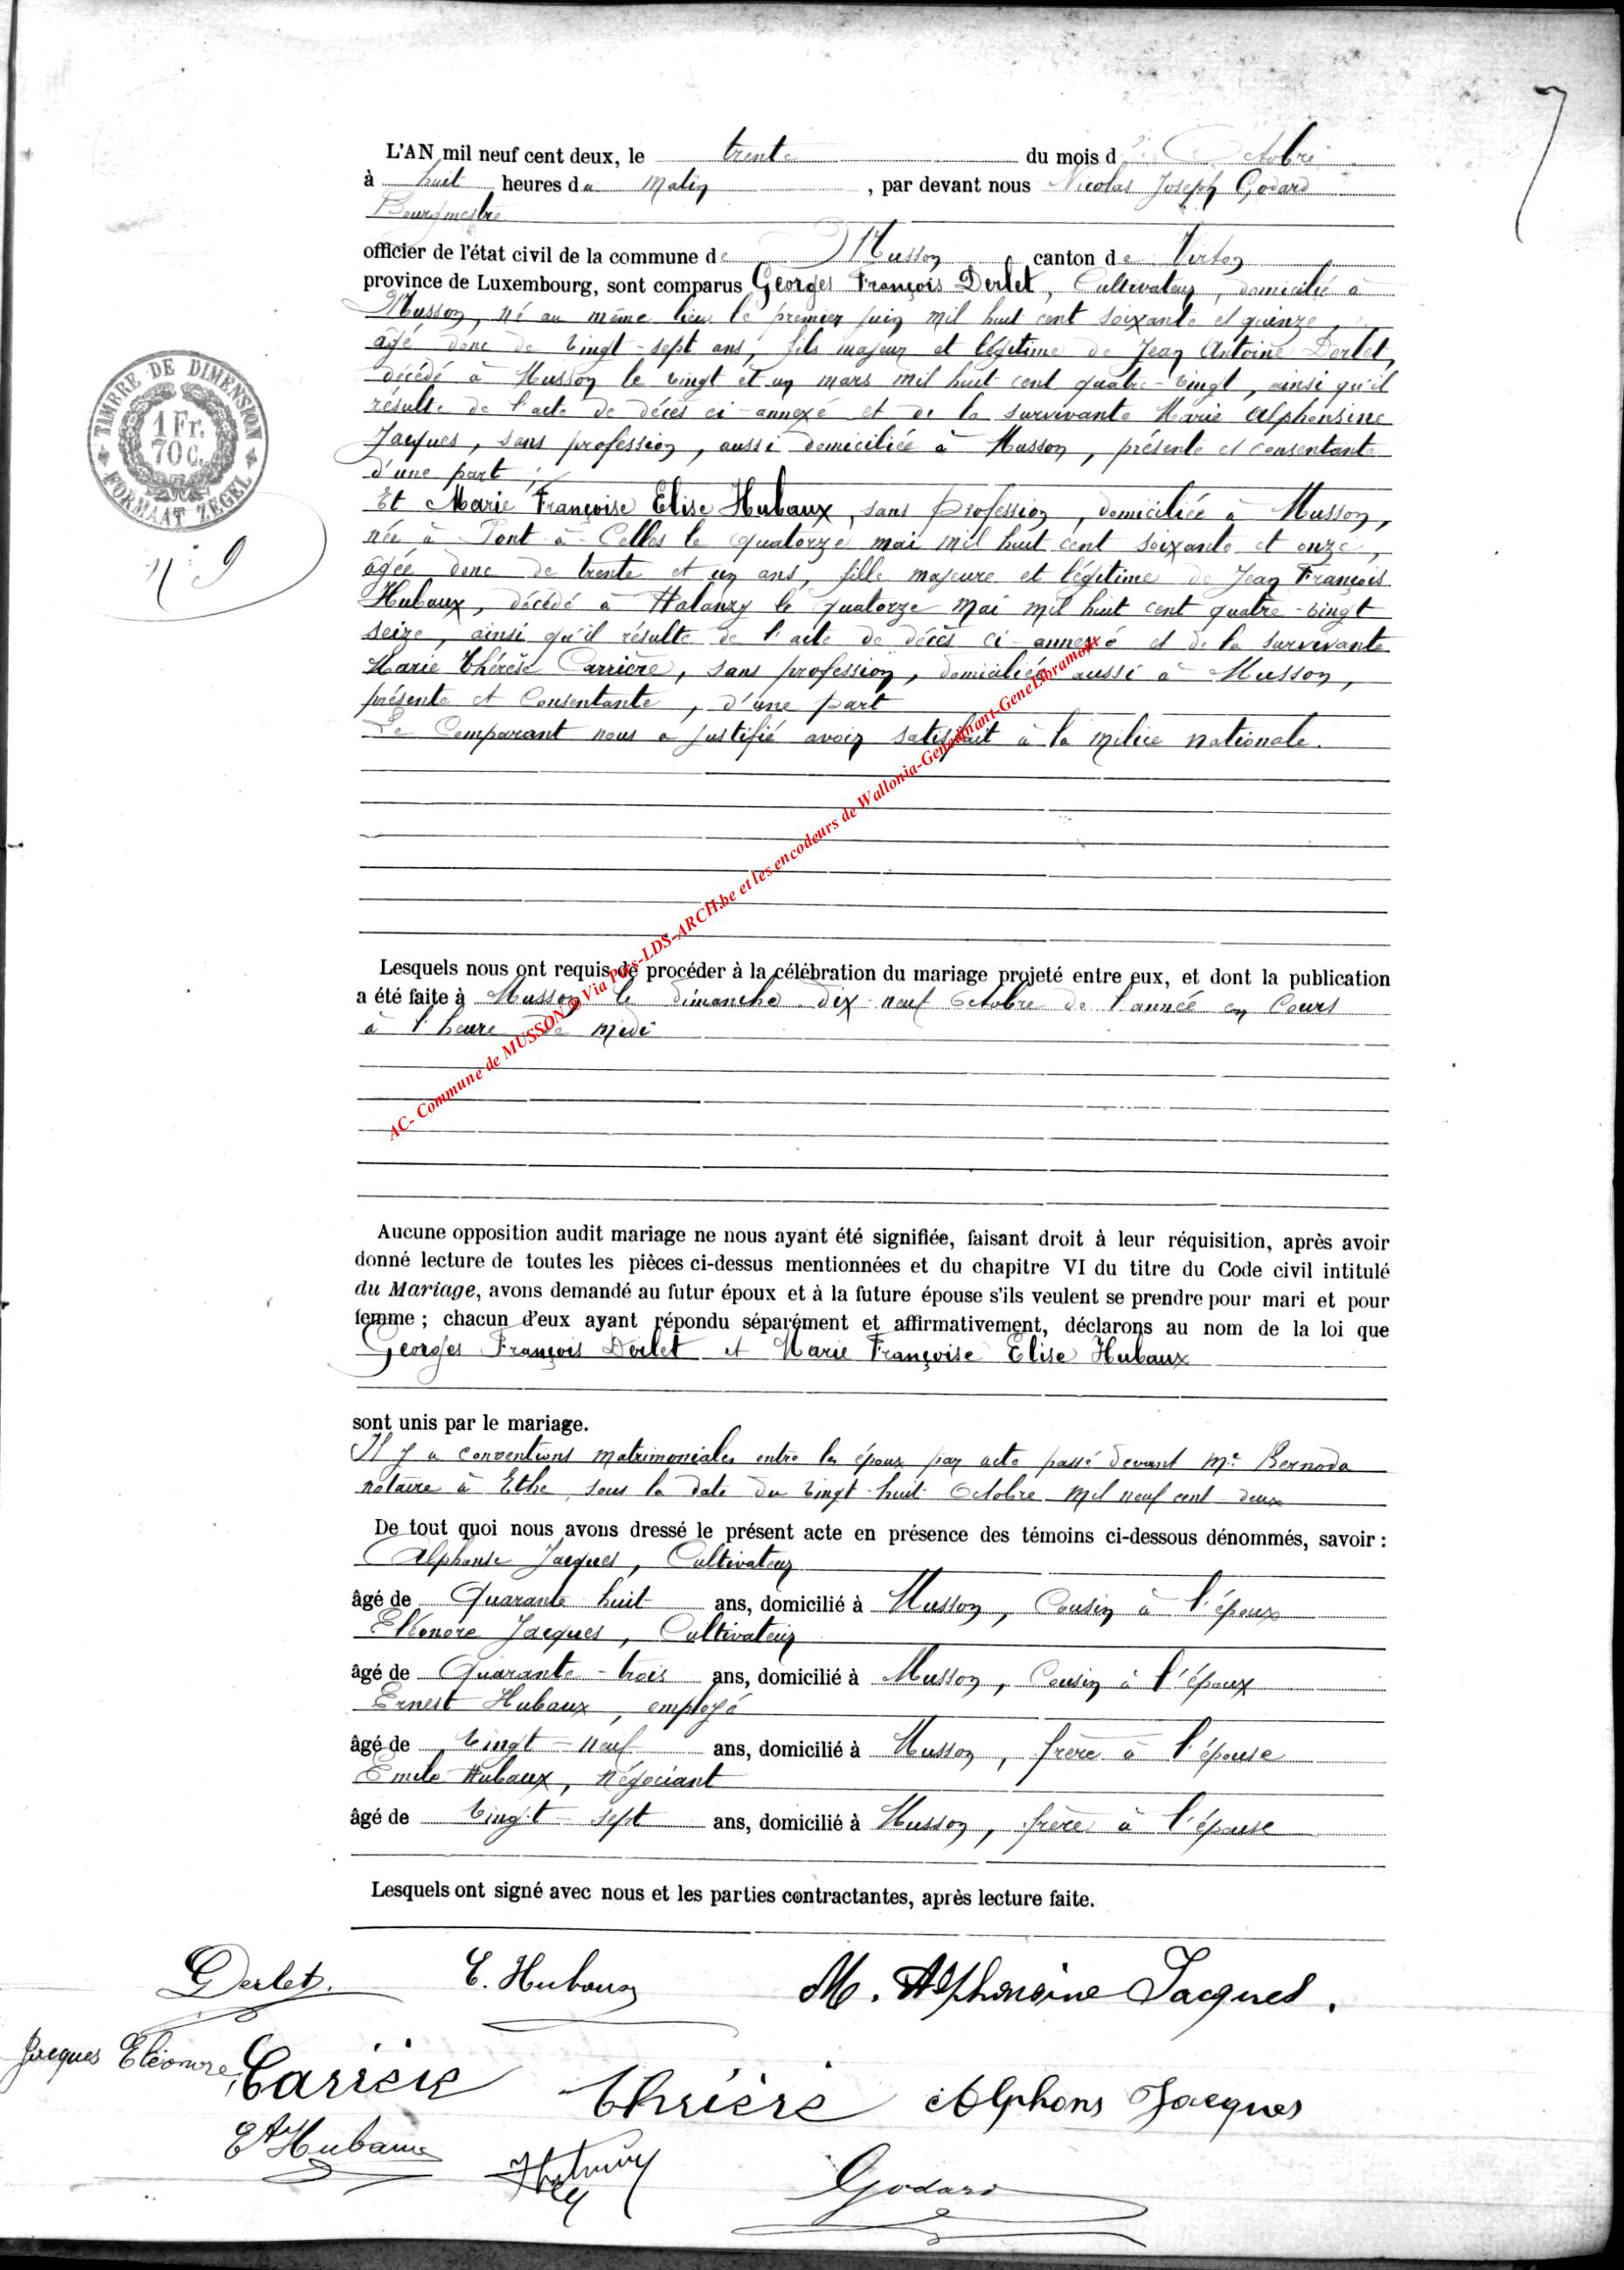 7
L'AN mil neuf cent deux, le trente du mois d'Octobre
à huit heures du Matin, par devant nous Nicolas Joseph Godard
Bourgmestre
officier de l'état civil de la commune de Musson canton de Virton
province de Luxembourg, sont comparus Georges François Derlet, Cultivateur, domicilié à
Musson, né au même lieu le premier juin mil huit cent soixante et quinze,
âgé donc de vingt-sept ans, fils majeur et légitime de Jean Antoine Derlet,
décédé à Musson le vingt et un mars mil huit cent quatre-vingt, ainsi qu'il
résulte de l'acte de décès ci-annexé et de la survivante Marie Alphonsine
Jacques, sans profession, aussi domiciliée à Musson, présente et consentante
d'une part;
Et Marie Françoise Elise Hubaux, sans profession, domiciliée à Musson,
née à Pont-à-Celles le quatorze mai mil huit cent soixante et onze,
âgée donc de trente et un ans, fille majeure et légitime de Jean François
Hubaux, décédé à Halanzy le quatorze Mai mil huit cent quatre-vingt
seize, ainsi qu'il résulte de l'acte de décès ci-annexé et de la survivante
Marie Thérèse Carrière, sans profession, domiciliée aussi à Musson,
présente et Consentante, d'une part
Le Comparant nous a justifié avoir satisfait à la milice nationale.
TIMBRE DE DIMENSION
1 Fr.
70 C.
FORMAAT ZEGEL
n° 9
AC- Commune de MUSSON @ Via Pars-LDS-ARCH.be et les encodeurs de Wallonia-Genedinant-GeneLibramont
Lesquels nous ont requis de procéder à la célébration du mariage projeté entre eux, et dont la publication
a été faite à Musson le dimanche dix-neuf Octobre de l'année en Cours
à l'heure de midi
Aucune opposition audit mariage ne nous ayant été signifiée, faisant droit à leur réquisition, après avoir
donné lecture de toutes les pièces ci-dessus mentionnées et du chapitre VI du titre du Code civil intitulé
du Mariage, avons demandé au futur époux et à la future épouse s'ils veulent se prendre pour mari et pour
femme ; chacun d'eux ayant répondu séparément et affirmativement, déclarons au nom de la loi que
Georges François Derlet et Marie Françoise Elise Hubaux
sont unis par le mariage.
Il y a conventions matrimoniales entre les époux par acte passé devant Me
notaire à Ethe, sous la date du vingt-huit Octobre mil neuf cent deux
De tout quoi nous avons dressé le présent acte en présence des témoins ci-dessous dénommés, savoir :
Alphonse Jacques, Cultivateur
âgé de Quarante huit ans, domicilié à Musson, Cousin à l'époux
Eléonore Jacques, Cultivateur
âgé de Quarante-trois ans, domicilié à Musson, Cousin à l'époux
Ernest Hubaux, employé
âgé de vingt-neuf ans, domicilié à Musson, frère à l'épouse
Emile Hubaux, Négociant
âgé de vingt-sept ans, domicilié à Musson, frère à l'épouse
Lesquels ont signé avec nous et les parties contractantes, après lecture faite.
G Derlet. E. Hubaux M. Alphonsine Jacques.
Jacques Eléonore Carrière Thrièrè Alphons Jacques
Et Hubaux Godard